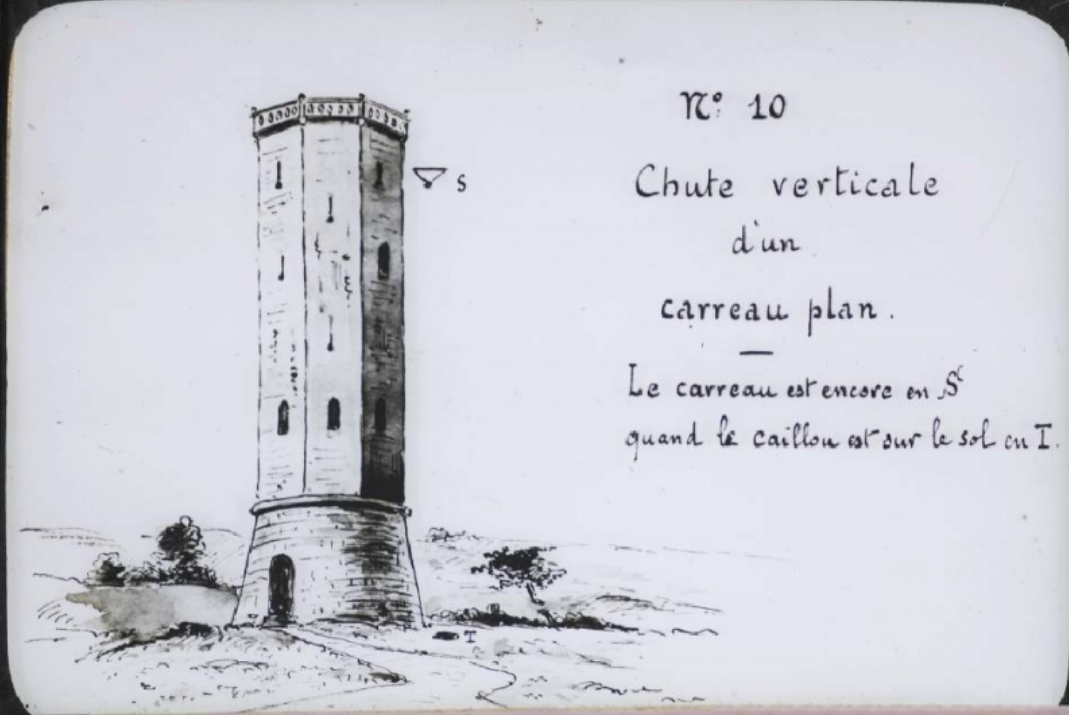 S
T
Nº 10
Chute verticale
d'un
carreau plan.
Le carreau est encore en S
quand le caillou est sur le sol en T.